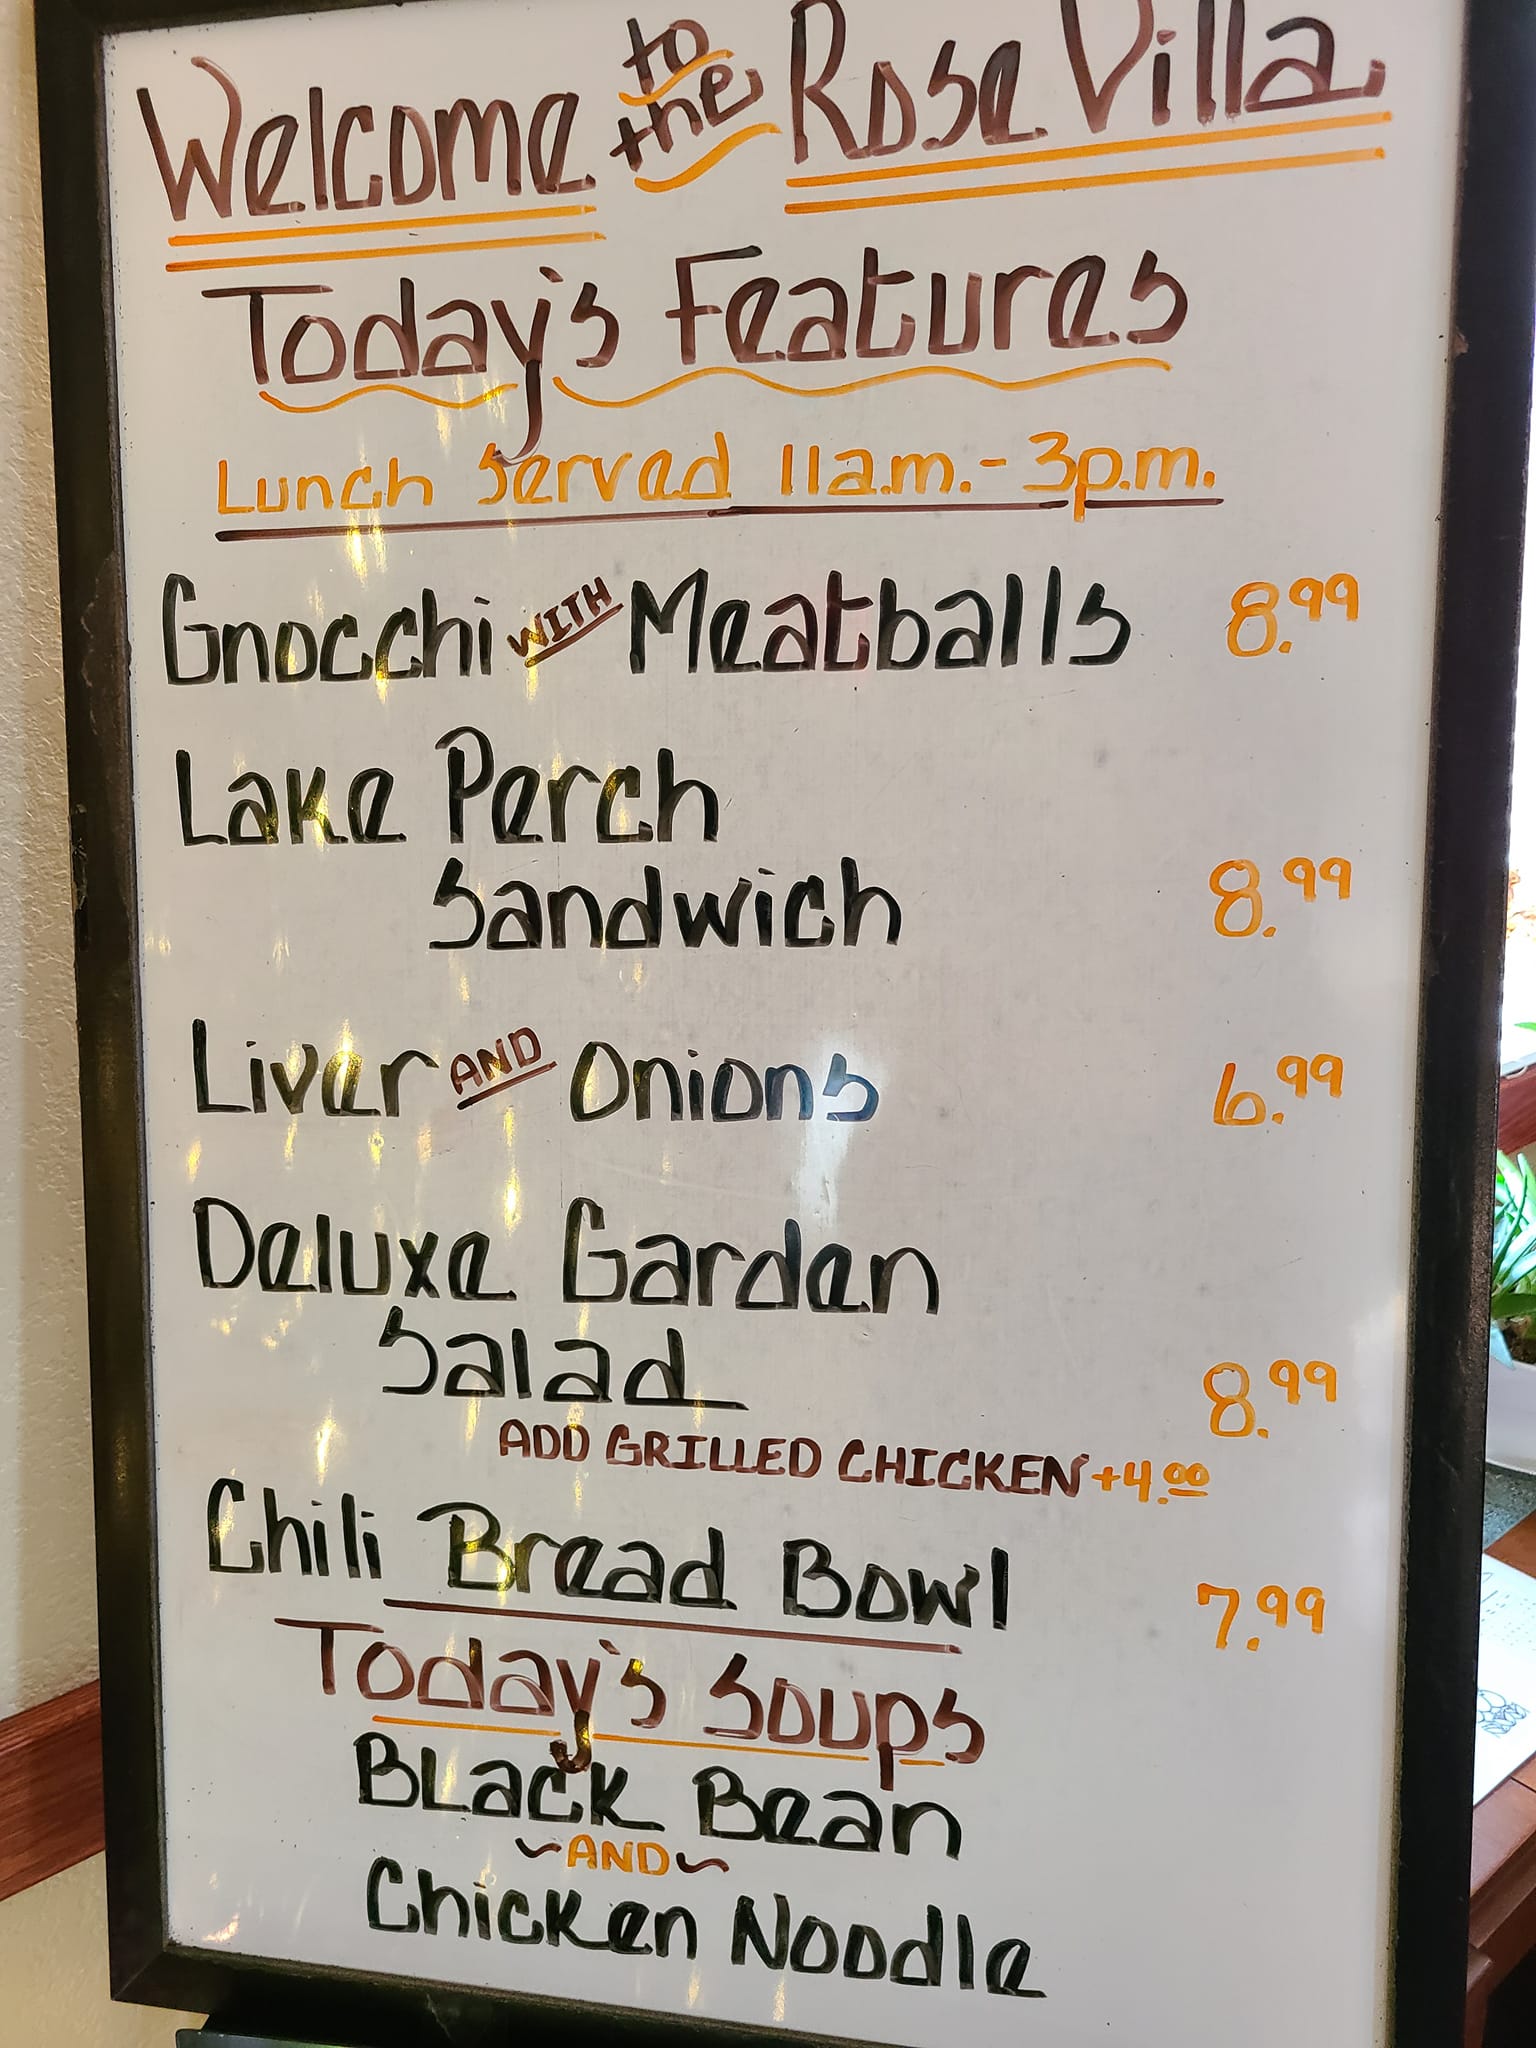 Welcome to the Rose Villa
Today's Features
Lunch Served 11a.m.-3p.m.
Gnocchi WITH Meatballs 8.99
Lake Perch
Sandwich 8.99
Liver AND Onions 6.99
Deluxe Garden
Salad 8.99
ADD GRILLED CHICKEN +4.00
Chili Bread Bowl 7.99
Today's Soups
Black Bean
~AND~
Chicken Noodle